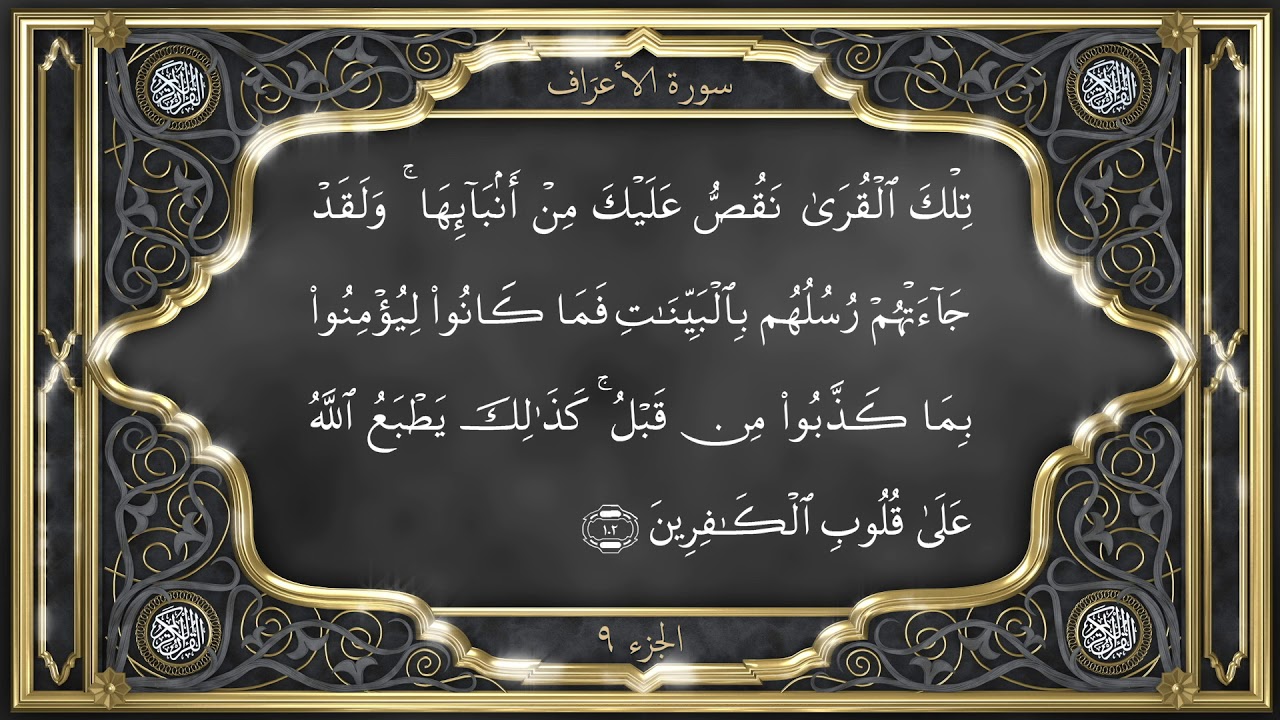 سورة الأعراف
تِلْكَ ٱلْقُرَىٰ نَقُصُّ عَلَيْكَ مِنْ أَنۢبَآئِهَا ۚ وَلَقَدْ
جَآءَتْهُمْ رُسُلُهُم بِٱلْبَيِّنَٰتِ فَمَا كَانُوا۟ لِيُؤْمِنُوا۟
بِمَا كَذَّبُوا۟ مِن قَبْلُ ۚ كَذَٰلِكَ يَطْبَعُ ٱللَّهُ
عَلَىٰ قُلُوبِ ٱلْكَٰفِرِينَ ١٠٢
الجزء ٩